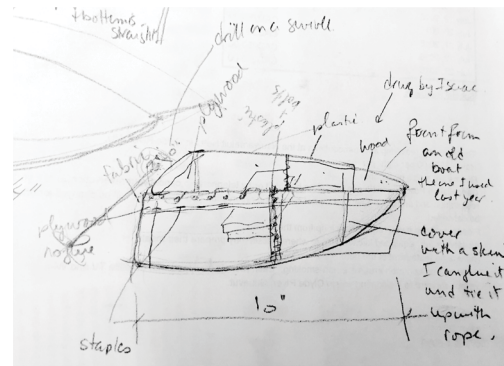 bottoms
straight
drill on a swivel
plywood
bolts
fabric
plastic
drug by Isaac
wood
front from
an old
boat
the one I used
last year.
plywood
no glue
cover
with a skin
I can glue it
and tie it
up with
rope.
10"
staples